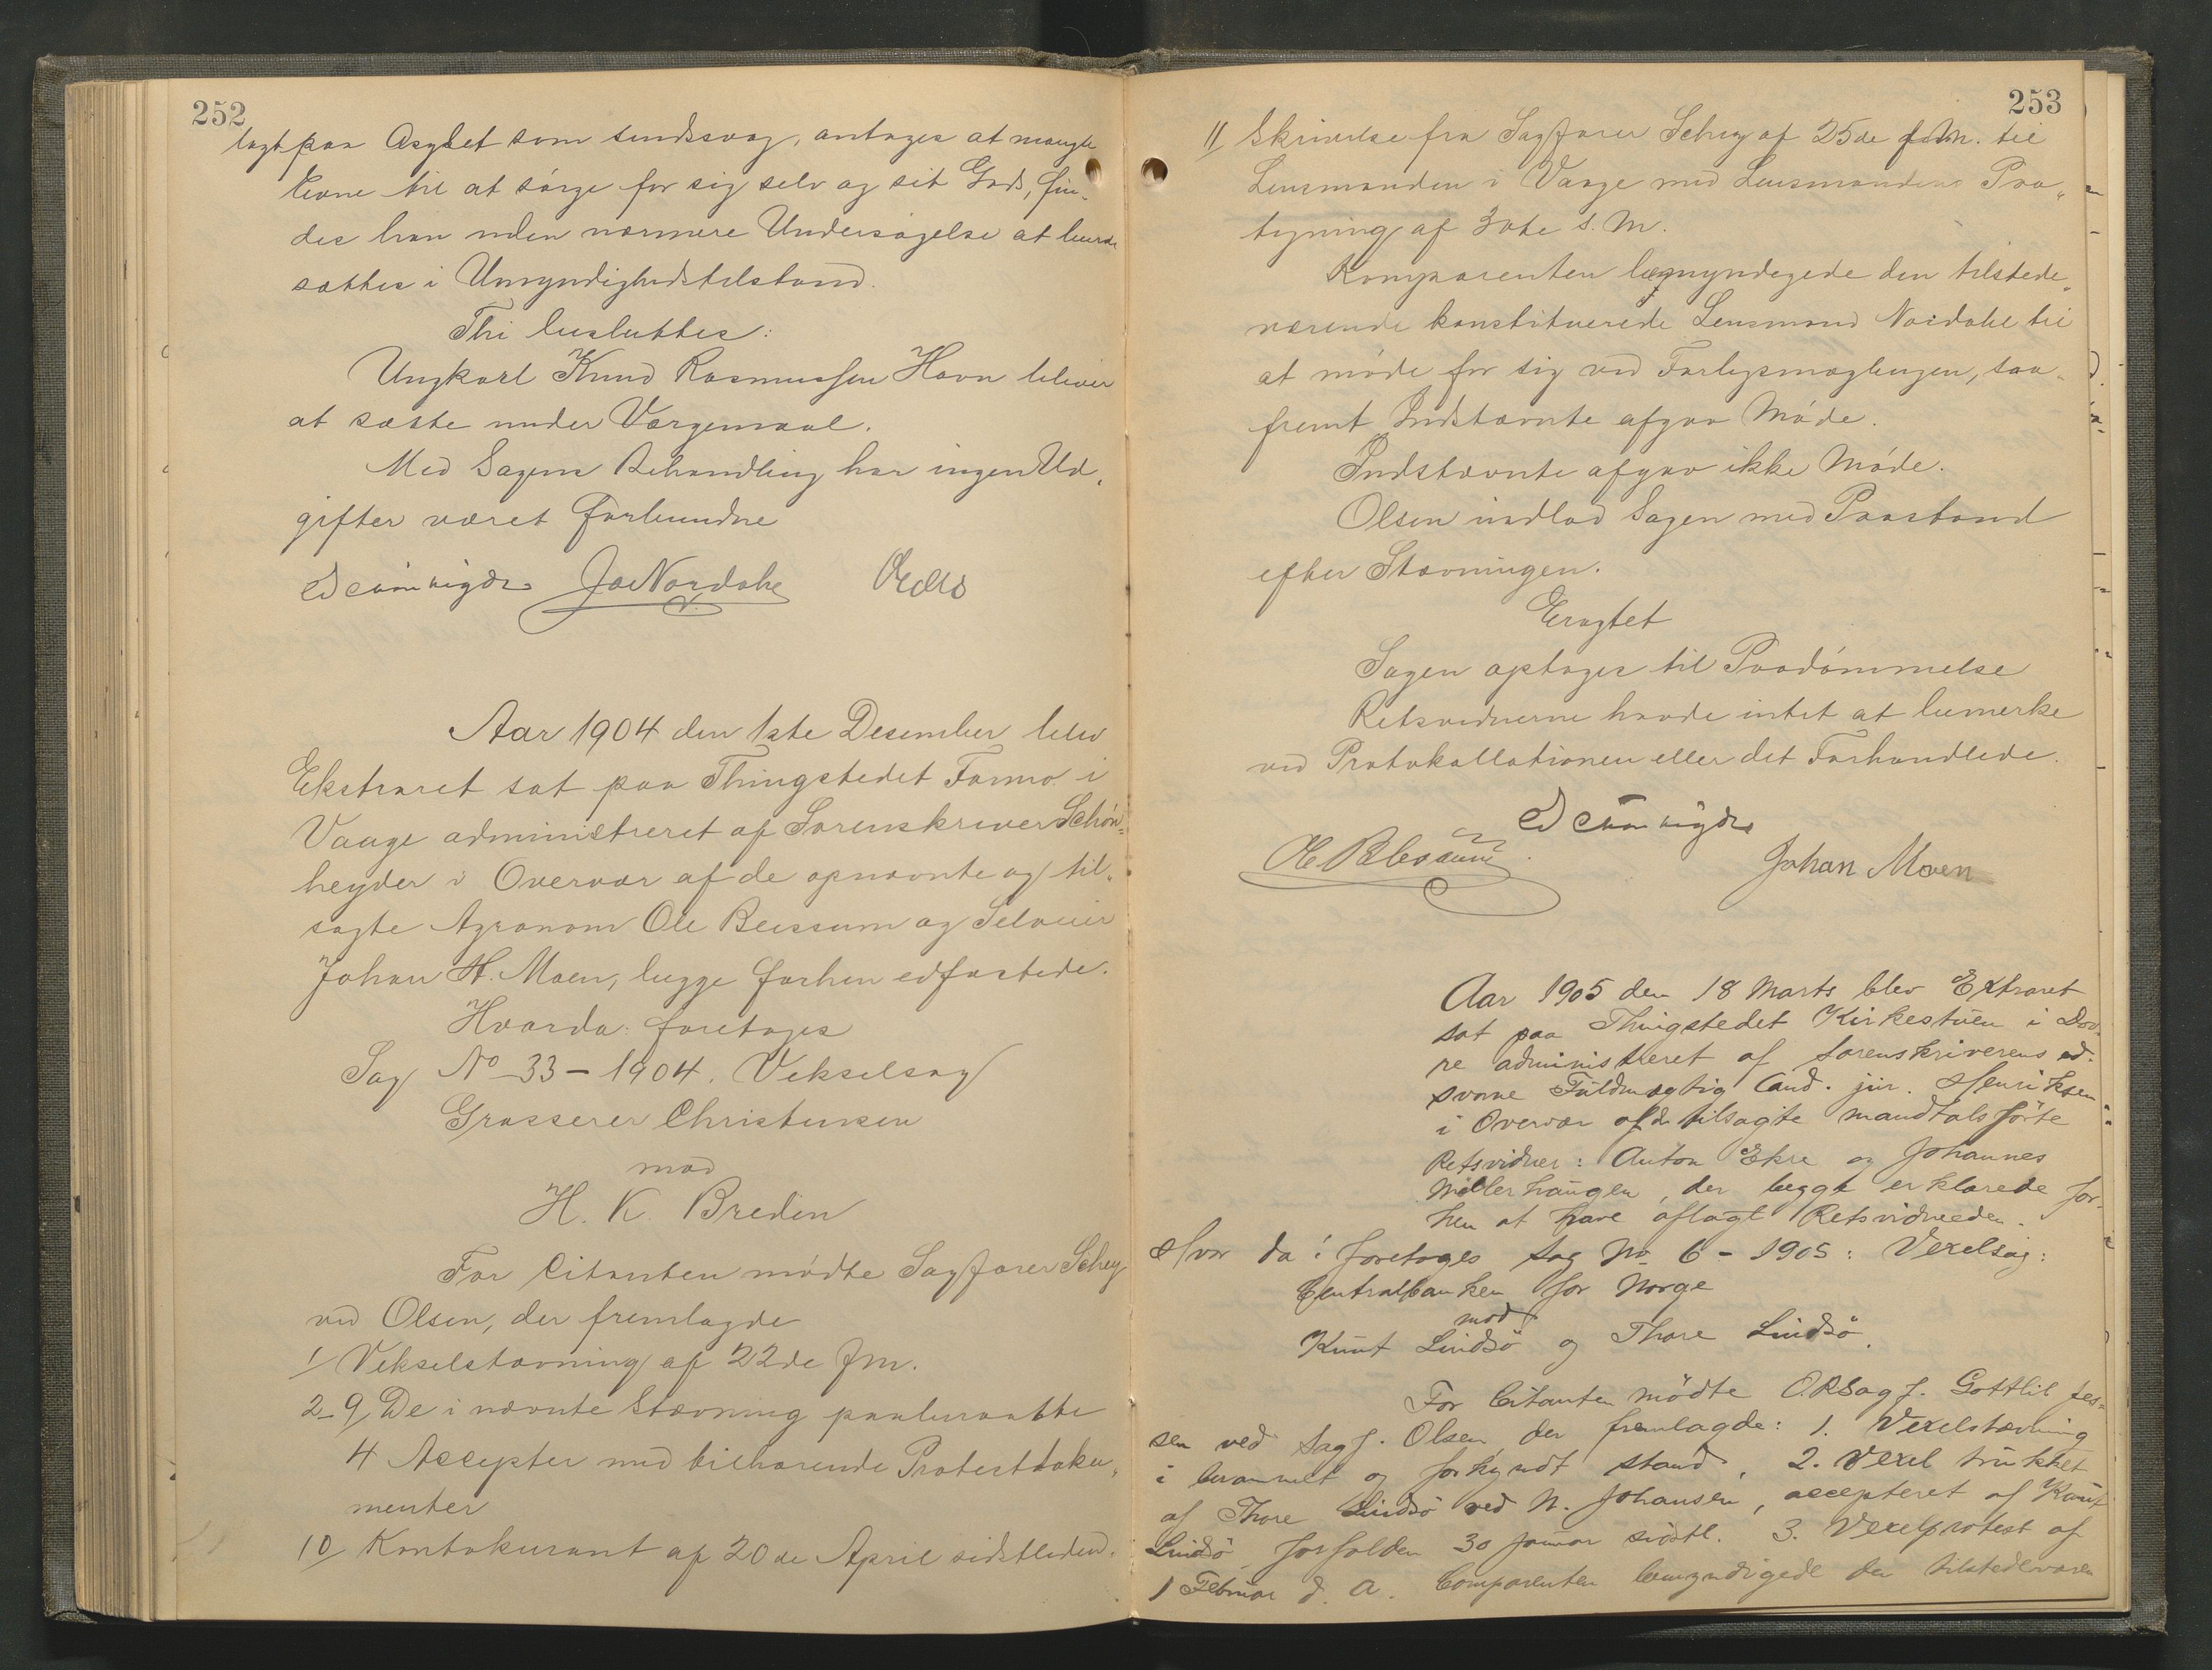 252
lagt paa Asylet som sindssvag, antages at mangle
Evne til at sørge for sig selv og sit Gods, fin-
des han uden nærmere Undersøgelse at burde
sættes i Umyndighedstilstand.
Thi besluttes:
Ungkarl Knud Rasmussen Havn bliver
at sætte under Værgemaal.
Med Sagens Behandling har ingen Ud-
gifter været forbundne
EdvSchønheyder Jo Nordahl
Aar 1904 den 1ste Desember blev
Ekstraret sat paa Thingstedet Formo i
Vaage administreret af Sorenskriver Schøn-
heyder i Overvær af de opnævnte og til-
sagte Agronom Ole Blessum og Selveier
Johan H. Moen, begge forhen edfæstede.
Hvorda: foretoges
Sag No 33 - 1904. Vekselsag
Grosserer Christensen
mod
H. K. Breden
For Citanten mødte Sagfører Schey
ved Olsen, der fremlagde
1/ Vekselstævning af 22de f.m.
2-9/ De i nævnte Stævning paaberaabte
4 Accepter med tilhørende Protestdoku-
menter
10/ Kontokurant af 20de April sidstleden.
253
11/ Skrivelse fra Sagfører Schey af 25de f.M. til
Lensmanden i Vaage med Lensmandens Paa-
tegning af 30te s.M.
Komparenten bemyndigede den tilstede-
værende konstituerede Lensmand Nordahl til
at møde for sig ved Forligsmæglingen, saa-
fremt Indstævnte afgav Møde.
Indstævnte afgav ikke Møde.
Olsen indlod Sagen med Paastand
efter Stævningen.
Eragtet
Sagen optages til Paadømmelse
Retsvidnerne havde intet at bemerke
ved Protokollationen eller det Forhandlede.
EdvSchønheyder
Ole Blessum Johan Moen
Aar 1905 den 18 Marts blev Extraret
sat paa Thingstedet Kirkestuen i Dov-
re administreret af Sorenskriverens ed-
svorne Fuldmægtig Cand. jur. Henriksen
i Overvær af de tilsagte mandtalsførte
Retsvidner: Anton Ekre og Johannes
Millerhaugen, der begge erklærede for-
hen at have aflagt Retsvidneeden.
Hvor da: foretoges Sag No 6 - 1905: Vexelsag:
Centralbanken for Norge
mod
Knut Lindsö og Thore Lindsö.
For Citanten mödte O.R.Sagf. Gottlib Jes-
sen ved Sagf. Olsen der fremlagde: 1. Vexelstævning
i berammet og forkyndt Stand, 2. Vexel trukket
af Thore Lindsö ved N. Johansen, accepteret af Knut
Lindsö forfalden 30 Januar sidstl. 3. Vexelprotest af
1 Februar d. A. Comparenten bemyndigede den tilstedeværen